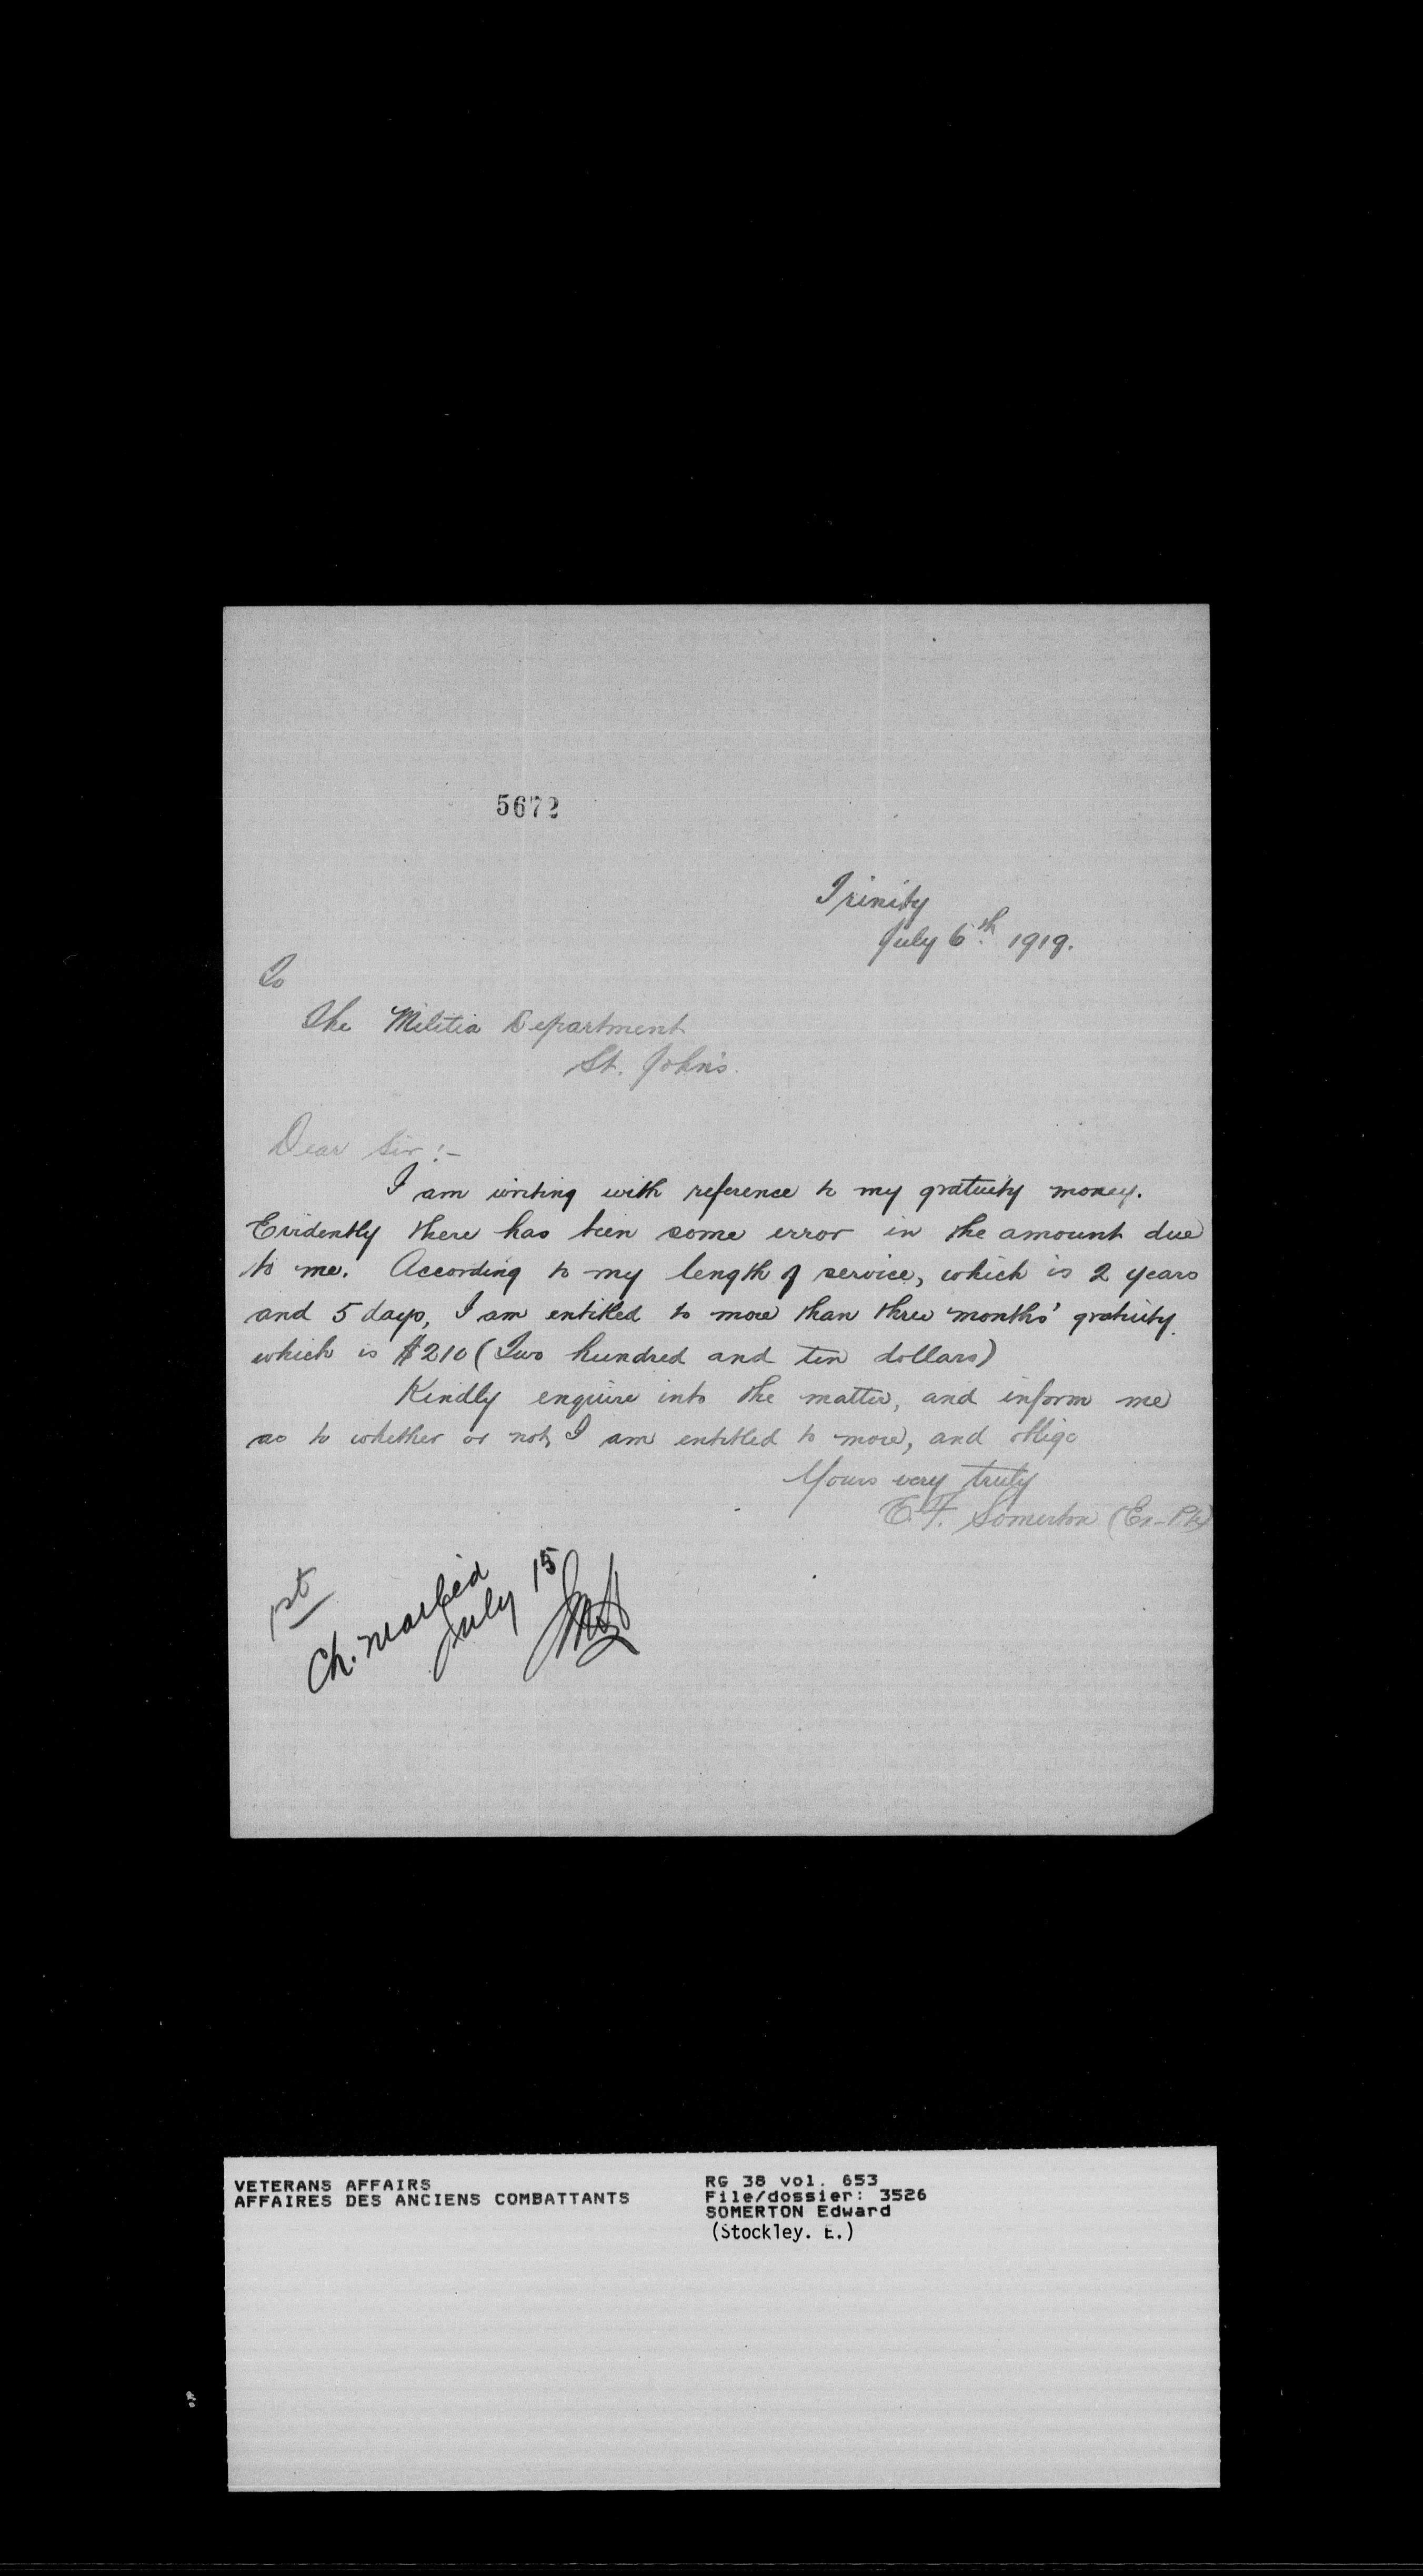 5672
Trinity
July 6th 1919.
To
The Militia Department
St. John's.
Dear Sir:-
I am writing with reference to my gratuity money.
Evidently there has been some error in the amount due
to me. According to my length of service, which is 2 years
and 5 days, I am entitled to more than three months' gratuity
which is $210 (Two hundred and ten dollars)
Kindly enquire into the matter, and inform me
as to whether or not, I am entitled to more, and oblige
Yours very truly
E.F. Somerton (Ex-Pte)
1st
Ch. marked
July 15
VETERANS AFFAIRS
AFFAIRES DES ANCIENS COMBATTANTS
RG 38 vol. 653
File/dossier: 3526
SOMERTON Edward
(Stockley. E.)